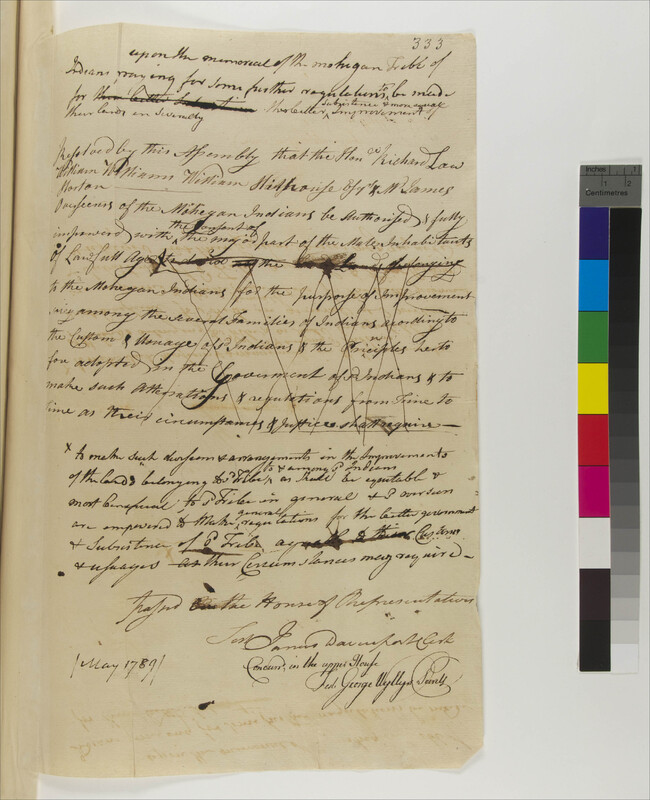 333
upon the memorial of the mohegan Tribe of
Indians praying for some further regulations to be made
for their better Subsistence the better Subsistence & more equal Improvement of
their lands in Severalty
Resolved by this Assembly that the Hon Richard Law
William Williams William Hillhouse Esqr & Mr James
Overseers of the Mohegan Indians be Authorised & fully
impowered with the Consent of the major part of the Male Inhabitants
of Lawfull Age to the Lands belonging
to the Mohegan Indians for the purpose of Improvement
among the several Families of Indians according to
the Custom & Useage of sd Indians & the Principles hereto
fore adopted in the Goverment of sd Indians & to
make such Alterations & regulations from Time to
time as their circumstances & Justice shall require —
x to make such divisions & arrangements in the Improvements
of the lands belonging to sd Tribe, to & among sd Indians as shall be equitable &
most beneficial to sd Tribe in general & sd overseers
are impowered to make general regulations for the better government
& Subsistence of sd Tribe Customs
& usuages as their Circumstances may require —
Passed in the House of Representatives
Test James Davenport Clerk
[May 1789]
Concurd, in the upper House
Test. George Wyllys Secrety